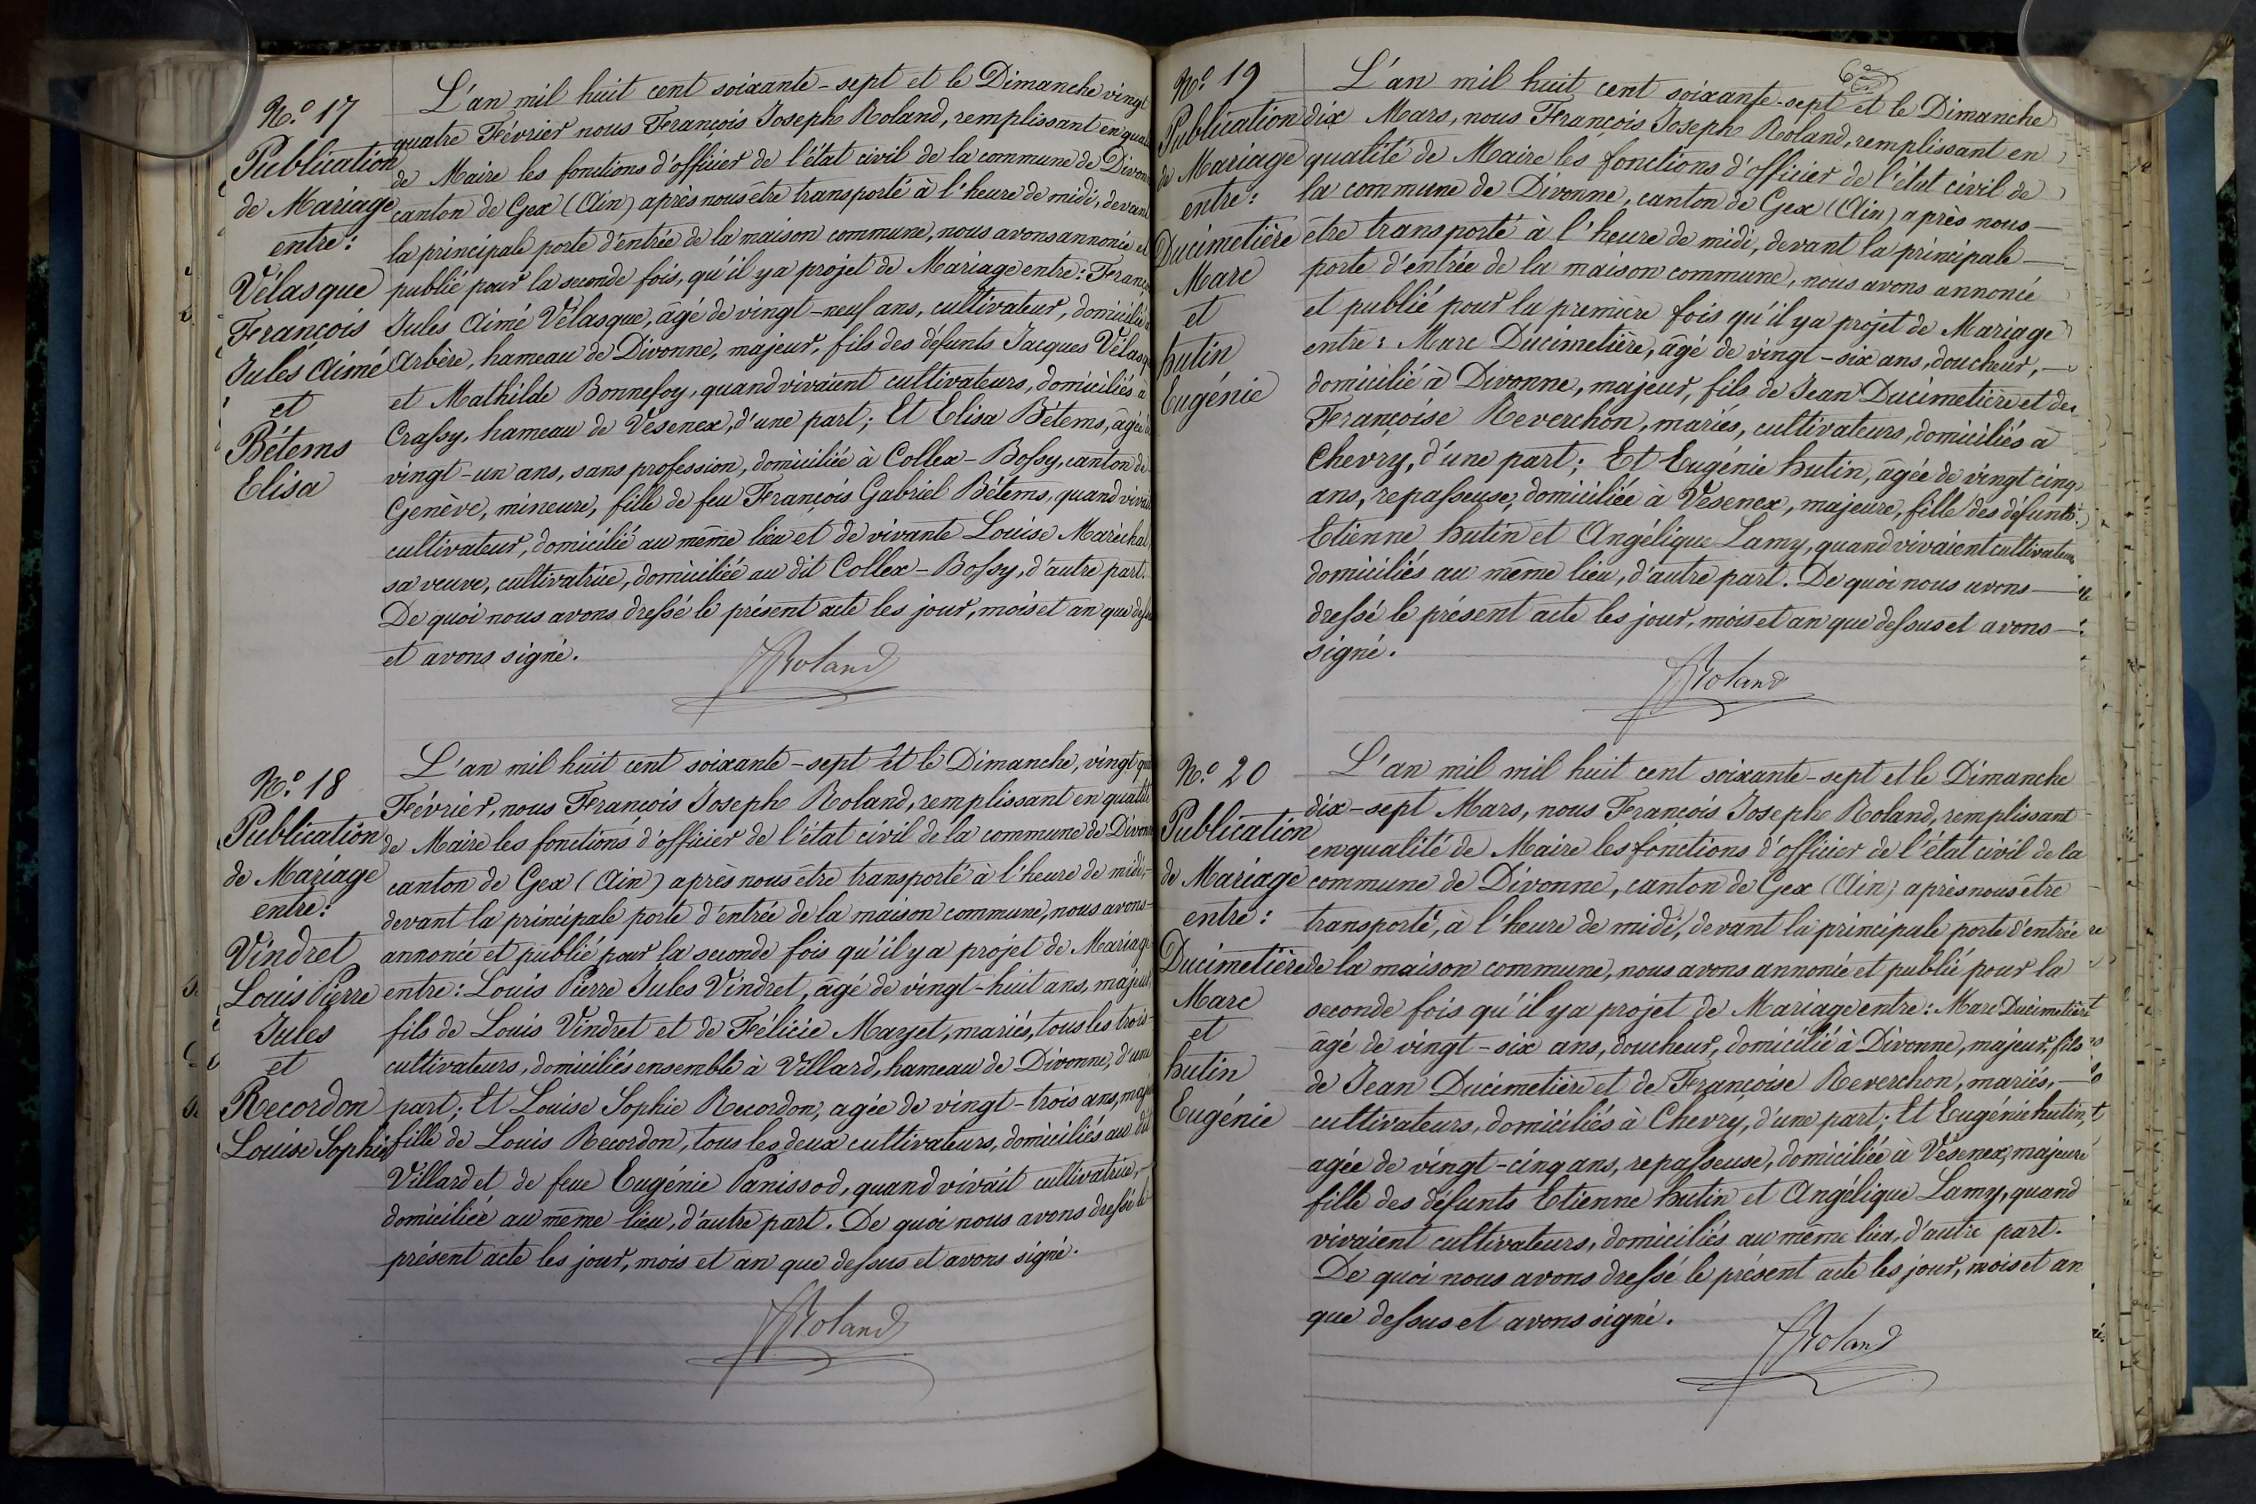 N.º 17
Publication
de Mariage
entre:
Vélasque
François
Jules Aimé
et
Bétems
Elisa
L'an mil huit cent soixante-sept et le Dimanche vingt
quatre Février nous François Joseph Roland, remplissant en
de Maire les fonctions d'officier de l'état civil de la commune de
canton de Gex (Ain) après nous être transporté à l'heure de midi, devant
la principale porte d'entrée de la maison commune, nous avons annoncé et
publié pour la seconde fois, qu'il y a projet de Mariage entre:
Jules Aimé Vélasque, âgé de vingt-neuf ans, cultivateur, domicilié à
Arbère, hameau de Divonne, majeur, fils des défunts Jacques
et Mathilde Bonnefoy, quand vivaient cultivateurs, domiciliés à
Crassy, hameau de Vésenex, d'une part; Et Elisa Bétems, âgée de
vingt-un ans, sans profession, domiciliée à Collex-Bossy, canton de
Genève, mineure, fille de feu François Gabriel Bétems, quand
cultivateur, domicilié au même lieu et de vivante Louise Maréchal,
sa veuve, cultivatrice, domiciliée au dit Collex-Bossy, d'autre part.
De quoi nous avons dressé le présent acte les jour, mois et an que
et avons signé.
JRoland
N.º 18
Publication
de Mariage
entre:
Vindret
Louis Pierre
Jules
et
Recordon
Louise Sophie
L'an mil huit cent soixante-sept et le Dimanche, vingt
Février, nous François Joseph Roland, remplissant en qualité
de Maire les fonctions d'officier de l'état civil de la commune de
canton de Gex (Ain) après nous être transporté à l'heure de midi,-
devant la principale porte d'entrée de la maison commune, nous avons-
annoncé et publié pour la seconde fois qu'il y a projet de Mariage
entre: Louis Pierre Jules Vindret, âgé de vingt-huit ans, majeur,
fils de Louis Vindret et de Félicie Mayet, mariés, tous les trois-
cultivateurs, domiciliés ensemble à Villard, hameau de Divonne, d'une
part; Et Louise Sophie Recordon, agée de vingt-trois ans,
fille de Louis Recordon, tous les deux cultivateurs, domiciliés au dit
Villard et de feue Eugénie Panissod, quand vivait cultivatrice,-
domiciliée au même lieu, d'autre part. De quoi nous avons dressé le
présent acte les jour, mois et an que dessus et avons signé.
JRoland
N.º 19
Publication
de Mariage
entre:
Ducimetière
Marc
et
hutin
Eugénie
L'an mil huit cent soixante-sept et le Dimanche
dix Mars, nous François Joseph Roland, remplissant en
qualité de Maire les fonctions d'officier de l'état civil de
la commune de Divonne, canton de Gex (Ain) après nous-
être transporté à l'heure de midi, devant la principale-
porte d'entrée de la maison commune, nous avons annoncé
et publié pour la première fois qu'il y a projet de Mariage
entre: Marc Ducimetière, âgé de vingt-six ans, doucheur,-
domicilié à Divonne, majeur, fils de Jean Ducimetière et de
Françoise Reverchon, mariés, cultivateurs, domiciliés à
Chevry, d'une part; Et Eugénie hutin, âgée de vingt cinq
ans, repasseuse, domiciliée à Vésenex, majeure, fille des défunts
Etienne hutin et Angélique Lamy, quand vivaient cultivateurs
domiciliés au même lieu, d'autre part. De quoi nous avons-
dressé le présent acte les jour, mois et an que dessus et avons-
signé.
JRoland
N.º 20
Publication
de Mariage
entre:
Ducimetière
Marc
et
hutin
Eugénie
L'an mil mil huit cent soixante-sept et le Dimanche
dix-sept Mars, nous François Joseph Roland, remplissant
en qualité de Maire les fonctions d'officier de l'état civil de la
commune de Divonne, canton de Gex (Ain) après nous être
transporté, à l'heure de midi, devant la principale porte d'entrée
de la maison commune, nous avons annoncé et publié pour la
seconde fois qu'il y a projet de Mariage entre: Marc Ducimetière
âgé de vingt-six ans, doucheur, domicilié à Divonne, majeur, fils
de Jean Ducimetière et de Françoise Reverchon, mariés,-
cultivateurs, domiciliés à Chevry, d'une part; Et Eugénie hutin,
agée de vingt-cinq ans, repasseuse, domiciliée à Vésenex, majeure
fille des défunts Etienne hutin et Angélique Lamy, quand
vivaient cultivateurs, domiciliés au même lieu, d'autre part.
De quoi nous avons dressé le présent acte les jour, mois et an
que dessus et avons signé.
JRoland